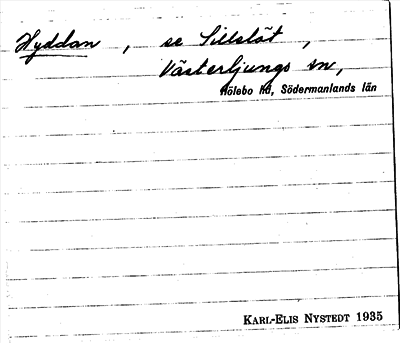 Hyddan, se Sillslöt,
Västerljungs sn,
Hölebo hd, Södermanlands län
KARL-ELIS NYSTEDT 1935